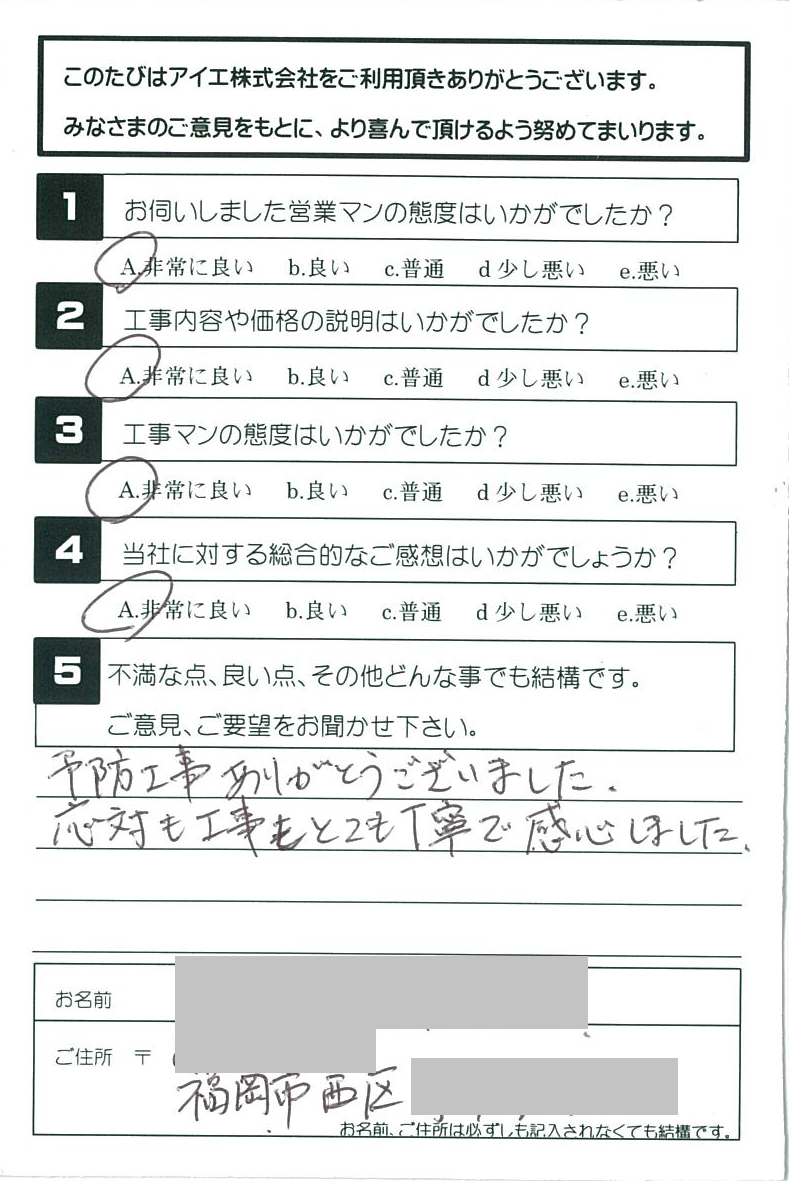 このたびはアイエ株式会社をご利用頂きありがとうございます。
みなさまのご意見をもとに、より喜んで頂けるよう努めてまいります。
1 お伺いしました営業マンの態度はいかがでしたか？
A.非常に良い b.良い c.普通 d 少し悪い e.悪い
2 工事内容や価格の説明はいかがでしたか？
A.非常に良い b.良い c.普通 d 少し悪い e.悪い
3 工事マンの態度はいかがでしたか？
A.非常に良い b.良い c.普通 d 少し悪い e.悪い
4 当社に対する総合的なご感想はいかがでしょうか？
A.非常に良い b.良い c.普通 d 少し悪い e.悪い
5 不満な点、良い点、その他どんな事でも結構です。
ご意見、ご要望をお聞かせ下さい。
予防工事ありがとうございました。
応対も工事もとても丁寧で感心しました。
お名前
ご住所 〒
福岡市西区
お名前、ご住所は必ずしも記入されなくても結構です。